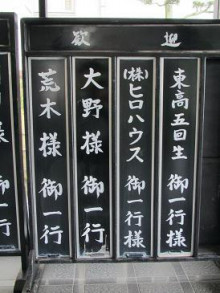 歓迎
東高五回生 御一行様
(株)ヒロハウス 御一行様
大野様 御一行
荒木様 御一行